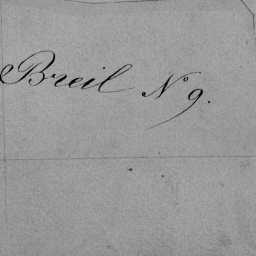 Breil No 9.